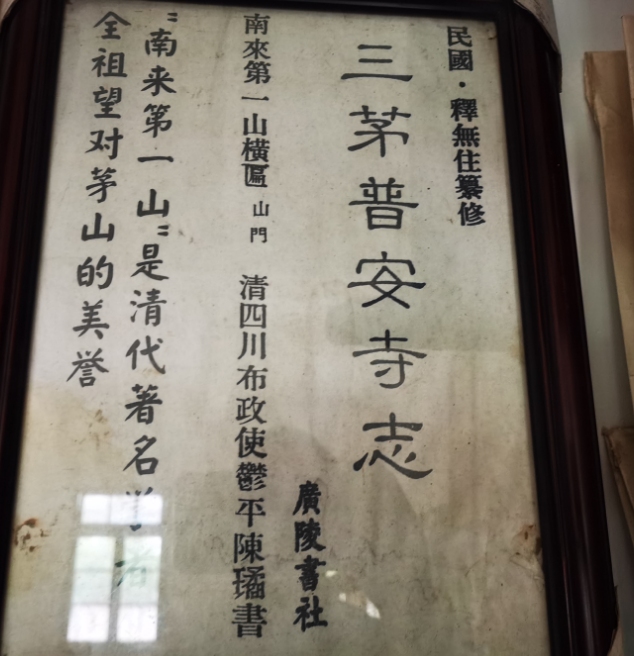 民國·釋無住纂修
三茅普安寺志
廣陵書社
南來第一山橫匾 山門 清四川布政使鬱平陳璚書
"南来第一山"是清代著名学者
全祖望对茅山的美誉